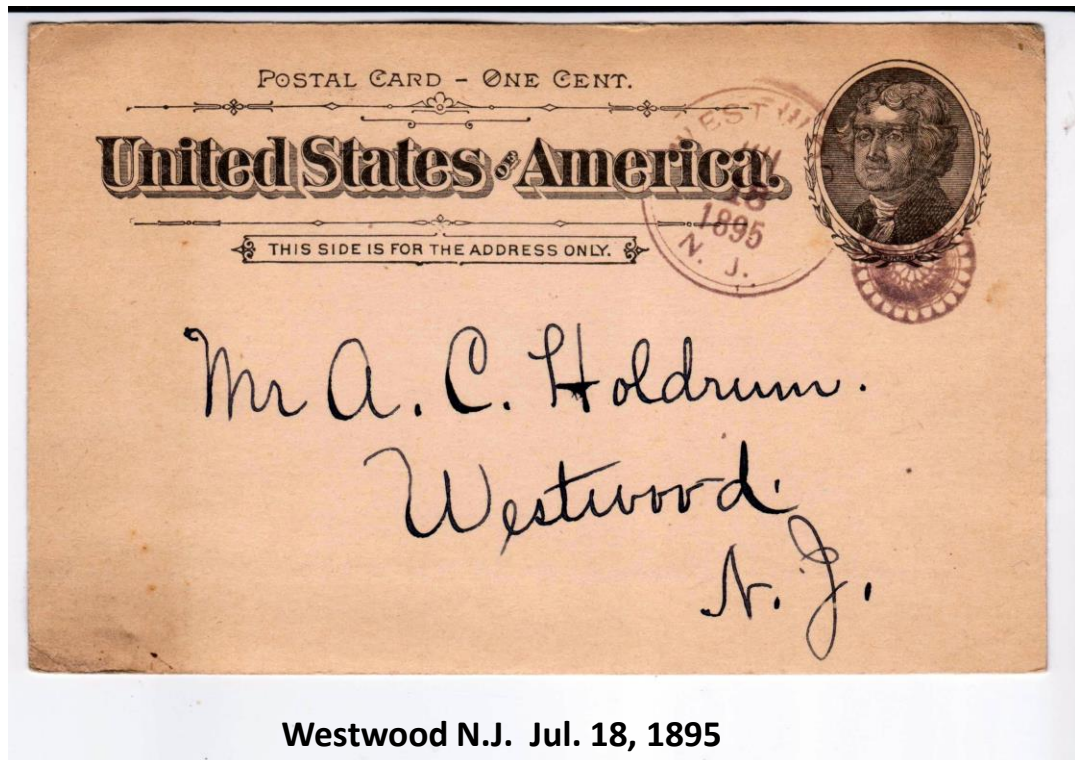 POSTAL CARD – ONE CENT.
United States OF America.
THIS SIDE IS FOR THE ADDRESS ONLY.
WESTW
18
1895
N. J.
Mr A. C. Holdrum.
Westwood.
N. J.
Westwood N.J. Jul. 18, 1895